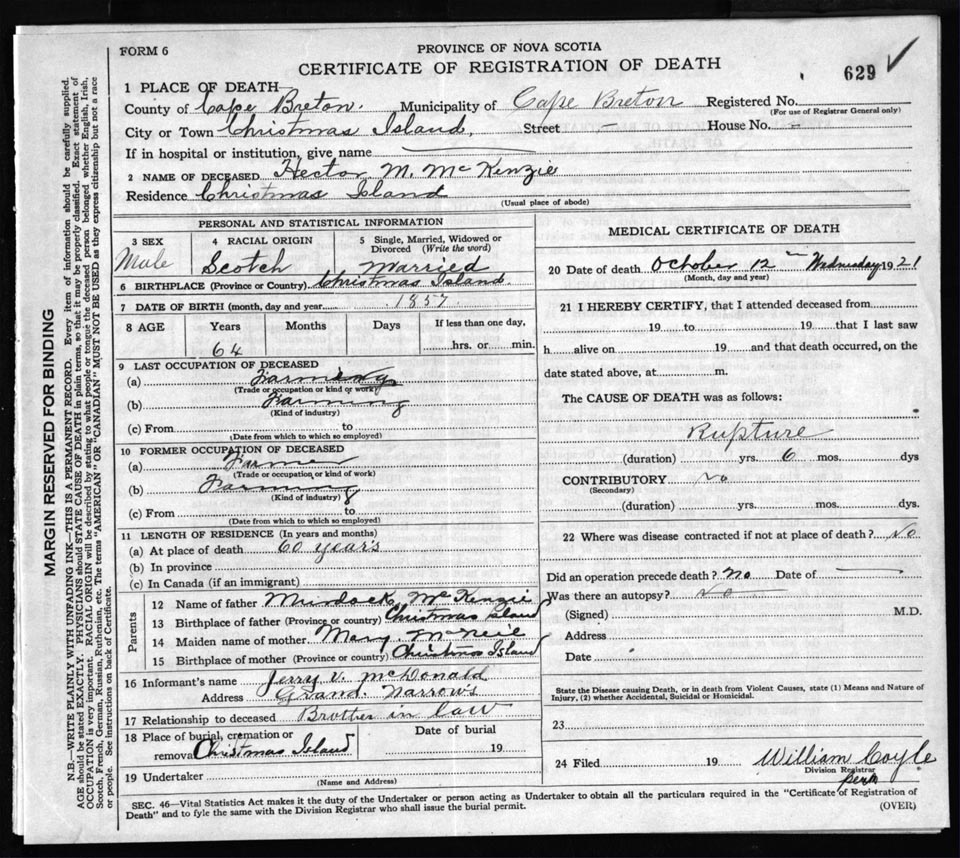 FORM 6
PROVINCE OF NOVA SCOTIA
CERTIFICATE OF REGISTRATION OF DEATH
629
1 PLACE OF DEATH
County of Cape Breton. Municipality of Cape Breton Registered No.
(For use of Registrar General only)
City or Town Christmas Island, Street – House No. –
If in hospital or institution, give name
2 NAME OF DECEASED Hector M. McKenzie
Residence Christmas Island
(Usual place of abode)
PERSONAL AND STATISTICAL INFORMATION
3 SEX 4 RACIAL ORIGIN 5 Single, Married, Widowed or Divorced (Write the word)
Male Scotch Married
6 BIRTHPLACE (Province or Country) Christmas Island.
7 DATE OF BIRTH (month, day and year) 1857
8 AGE Years Months Days If less than one day,
64 hrs. or min.
9 LAST OCCUPATION OF DECEASED
(a) Farming
(Trade or occupation or kind of work)
(b) Farming
(Kind of industry)
(c) From to
(Date from which to which so employed)
10 FORMER OCCUPATION OF DECEASED
(a)
(Trade or occupation or kind of work)
(b) Farming
(Kind of industry)
(c) From to
(Date from which to which so employed)
11 LENGTH OF RESIDENCE (In years and months)
(a) At place of death 60 years
(b) In province
(c) In Canada (if an immigrant)
Parents
12 Name of father Murdock McKenzie
13 Birthplace of father (Province or country) Christmas Island
14 Maiden name of mother Mary McNeil
15 Birthplace of mother (Province or country) Christmas Island
16 Informant's name Jerry V. McDonald
Address Grand Narrows
17 Relationship to deceased Brother in law
18 Place of burial, cremation or removal Christmas Island Date of burial 19
19 Undertaker
(Name and Address)
MEDICAL CERTIFICATE OF DEATH
20 Date of death October 12 Wednesday 1921
(Month, day and year)
21 I HEREBY CERTIFY, that I attended deceased from
19 to 19 that I last saw
h alive on 19 and that death occurred, on the
date stated above, at m.
The CAUSE OF DEATH was as follows:
Rupture
(duration) yrs. 6 mos. dys
CONTRIBUTORY No
(Secondary)
(duration) yrs. mos. dys.
22 Where was disease contracted if not at place of death? No
Did an operation precede death? No Date of —
Was there an autopsy? No
(Signed) M.D.
Address
Date
State the Disease causing Death, or in death from Violent Causes, state (1) Means and Nature of
Injury, (2) whether Accidental, Suicidal or Homicidal.
23
24 Filed 19 William Coyle
Division Registrar
SEC. 46—Vital Statistics Act makes it the duty of the Undertaker or person acting as Undertaker to obtain all the particulars required in the "Certificate of Registration of
Death" and to fyle the same with the Division Registrar who shall issue the burial permit.
(OVER)
MARGIN RESERVED FOR BINDING
N.B.—WRITE PLAINLY WITH UNFADING INK—THIS IS A PERMANENT RECORD. Every item of information should be carefully supplied.
AGE should be stated EXACTLY. PHYSICIANS should STATE CAUSE OF DEATH in plain terms, so that it may be properly classified. Exact statement of
OCCUPATION is very important. RACIAL ORIGIN will be described by stating to what people or tongue the deceased person belonged whether English, Irish,
Scotch, French, German, Russian, Ruthenian, etc. The terms "AMERICAN" OR "CANADIAN" MUST NOT BE USED as they express citizenship but not a race
or people. See instructions on back of Certificate.